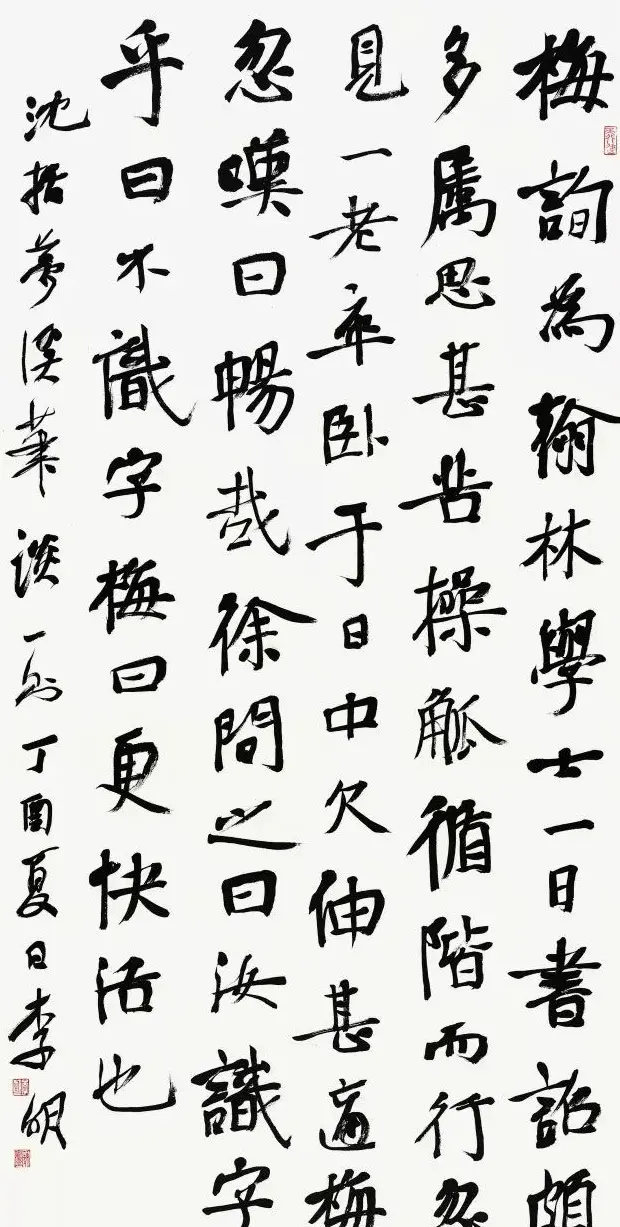 梅詢為翰林學士一日書詔頗
多属思甚苦操觚循階而行忽
見一老卒卧于日中欠伸甚適梅
忽嘆曰暢哉徐問之曰汝識字
乎曰不識字梅曰更快活也
沈括夢溪筆談一則丁酉夏日李明